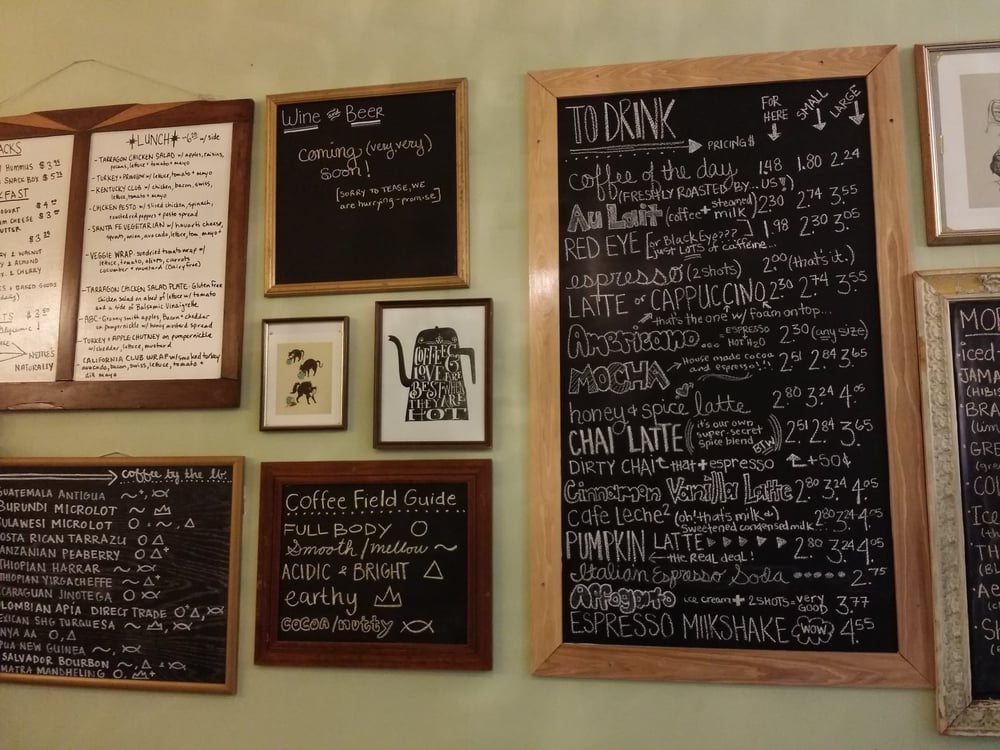 ACKS
HUMMUS $3.
SNACK BOX $5.
FAST
$4.
CHEESE $3.
$3.
WALNUT
ALMOND
CHERRY
BAKED GOODS
NATURALLY
LUNCH
w/ side
- TARRAGON CHICKEN SALAD w/ apples, raisins,
pecans, lettuce + tomato + mayo
- TURKEY + PROVOLONE w/ lettuce, tomato + mayo
- KENTUCKY CLUB w/ chicken, bacon, swiss,
lettuce, tomato + mayo
- CHICKEN PESTO w/ sliced chicken, spinach,
roasted red peppers + pesto spread
- SANTA FE VEGETARIAN w/ havarti cheese,
sprouts, onion, avocado, lettuce, tom, mayo +
- VEGGIE WRAP: sundried tomato wrap w/
lettuce, tomato, olives, carrots
cucumber + mustard (Dairy free)
- TARRAGON CHICKEN SALAD PLATE: Gluten free
chicken salad on a bed of lettuce w/ tomato
and a side of Balsamic Vinaigrette
- ABC: Granny smith apples, Bacon + cheddar
on pumpernickel w/ honey mustard spread
- TURKEY + APPLE CHUTNEY on pumpernickel
w/ cheddar, lettuce, mustard
CALIFORNIA CLUB WRAP w/ smoked turkey
avocado, bacon, swiss, lettuce, tomato +
mayo
Wine and Beer
coming (very, very)
soon!
[SORRY TO TEASE, WE
are hurrying - promise]
COFFEE
LOVERS
BEST
THEY ARE
HOT
coffee by the lb.
GUATEMALA ANTIGUA
BURUNDI MICROLOT
SULAWESI MICROLOT
COSTA RICAN TARRAZU
TANZANIAN PEABERRY
ETHIOPIAN HARRAR
ETHIOPIAN YIRGACHEFFE
NICARAGUAN JINOTEGA
COLOMBIAN APIA DIRECT TRADE
MEXICAN SHG TURGUESA
KENYA AA
PAPUA NEW GUINEA
SALVADOR BOURBON
SUMATRA MANDHELING
Coffee Field Guide
FULL BODY
Smooth/mellow
ACIDIC & BRIGHT
earthy
cocoa/nutty
TO DRINK
PRICING $
FOR HERE SMALL LARGE
coffee of the day 1.48 1.80 2.24
(FRESHLY ROASTED BY... US!)
Au Lait (coffee + steamed milk) 2.30 2.74 3.55
RED EYE [or Black Eye??? just LOTS of caffeine... 1.98 2.30 3.05
espresso (2 shots) 2.00 (that's it.)
LATTE or CAPPUCCINO 2.30 2.74 3.55
that's the one w/ foam on top...
Americano ... ESPRESSO HOT H2O 2.30 (any size)
MOCHA House made cocoa and espresso!!! 2.51 2.84 3.65
honey & spice latte 2.80 3.24 4.05
CHAI LATTE (it's our own super-secret spice blend BTW) 2.51 2.84 3.65
DIRTY CHAI that + espresso +50¢
Cinnamon Vanilla Latte 2.80 3.24 4.05
cafe Leche² (oh! that's milk & Sweetened condensed milk) 2.80 3.24 4.05
PUMPKIN LATTE 2.80 3.24 4.05
the Real deal!
Italian Espresso Soda 2.75
Affogato ice cream + 2 SHOTS = very GOOD 3.77
ESPRESSO MILKSHAKE WOW 4.55
iced